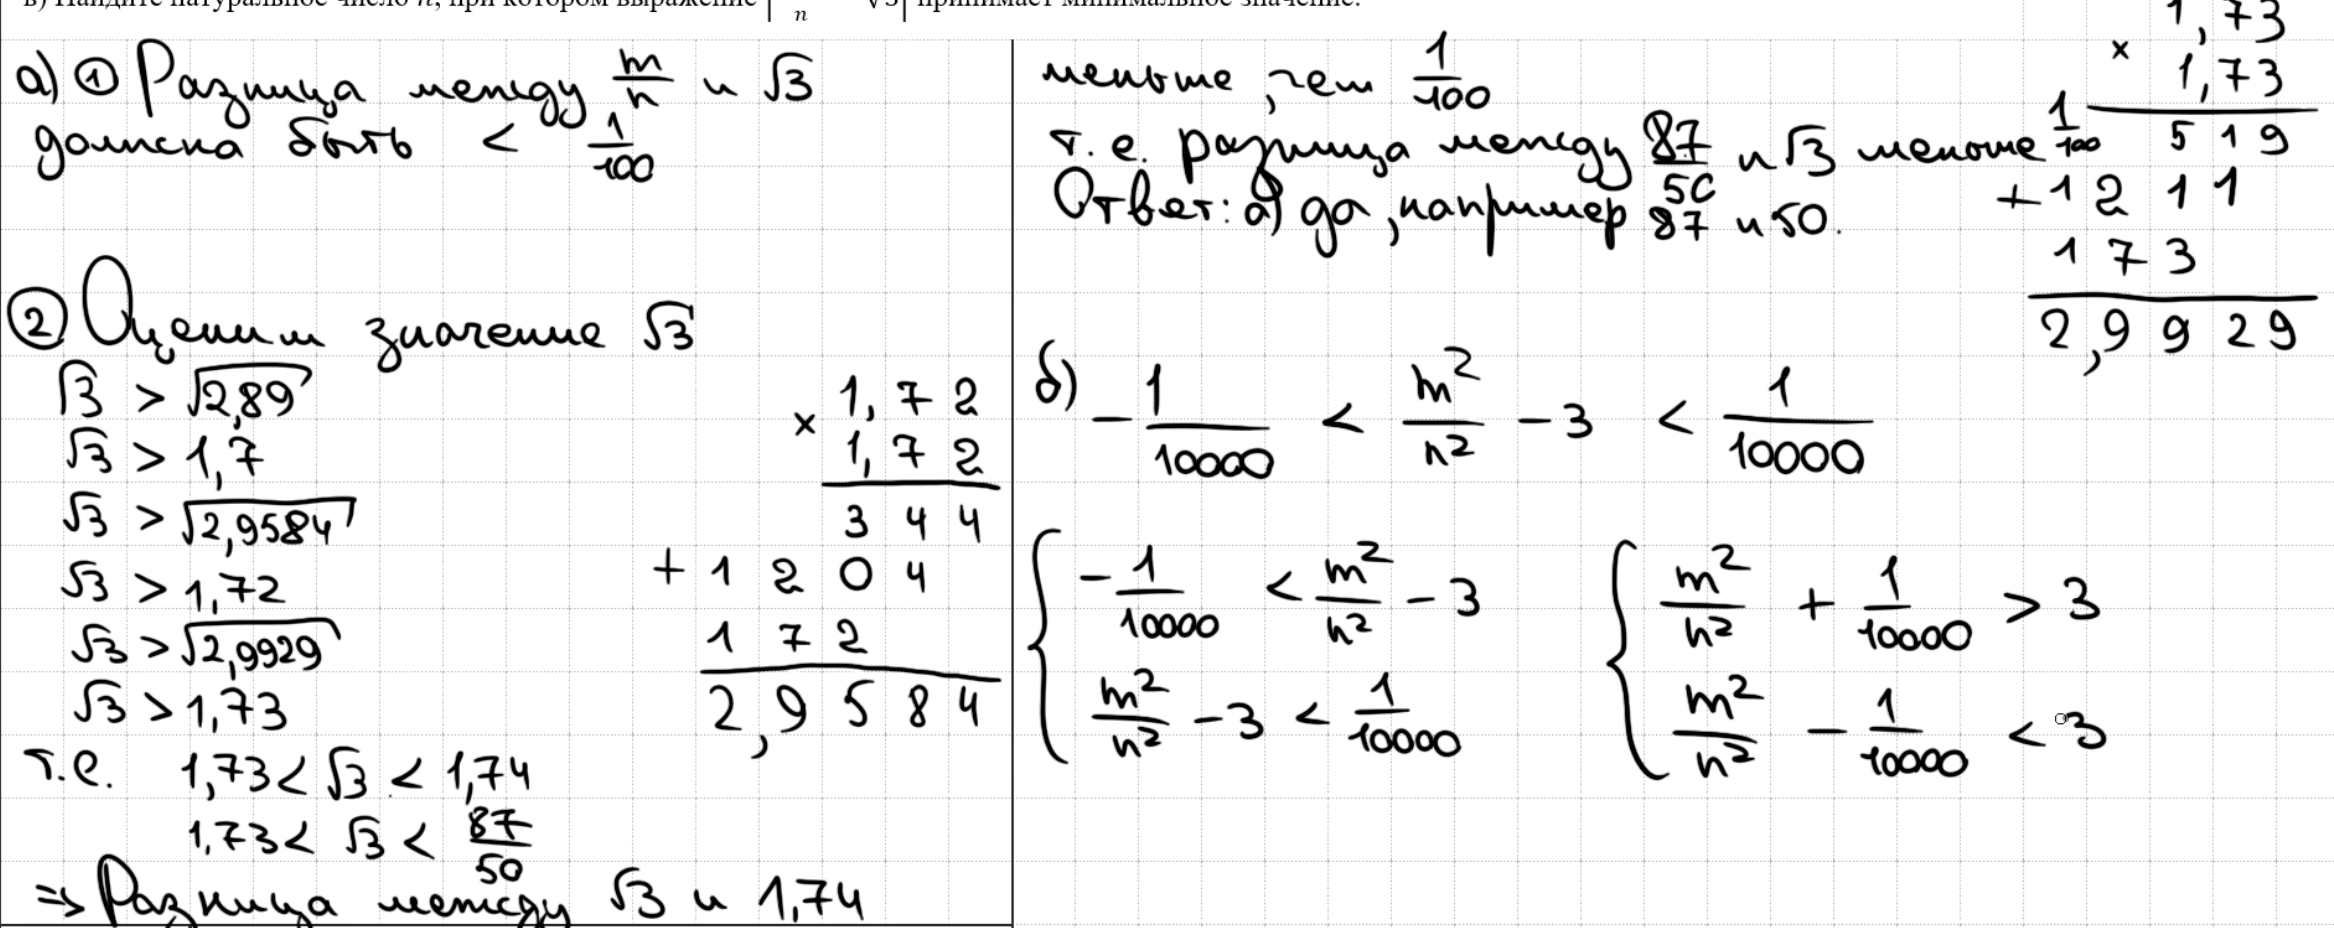 в) Найдите натуральное число n, при котором выражение | n √3| принимает минимальное значение.
а) ① Разница между m/n и √3
должна быть < 1/100
② Оценим значение √3
√3 > √2,89
√3 > 1,7
√3 > √2,9584
√3 > 1,72
√3 > √2,9929
√3 > 1,73
т.е. 1,73 < √3 < 1,74
1,73 < √3 < 87/50
=> Разница между √3 и 1,74
1,72
× 1,72
344
+ 1204
172
2,9584
меньше, чем 1/100
т.е. разница между 87/50 и √3 меньше 1/100
Ответ: а) да, например 87 и 50.
1,73
× 1,73
519
+ 1211
173
2,9929
б) - 1/10000 < m²/n² - 3 < 1/10000
{ - 1/10000 < m²/n² - 3
m²/n² - 3 < 1/10000
{ m²/n² + 1/10000 > 3
m²/n² - 1/10000 < 3